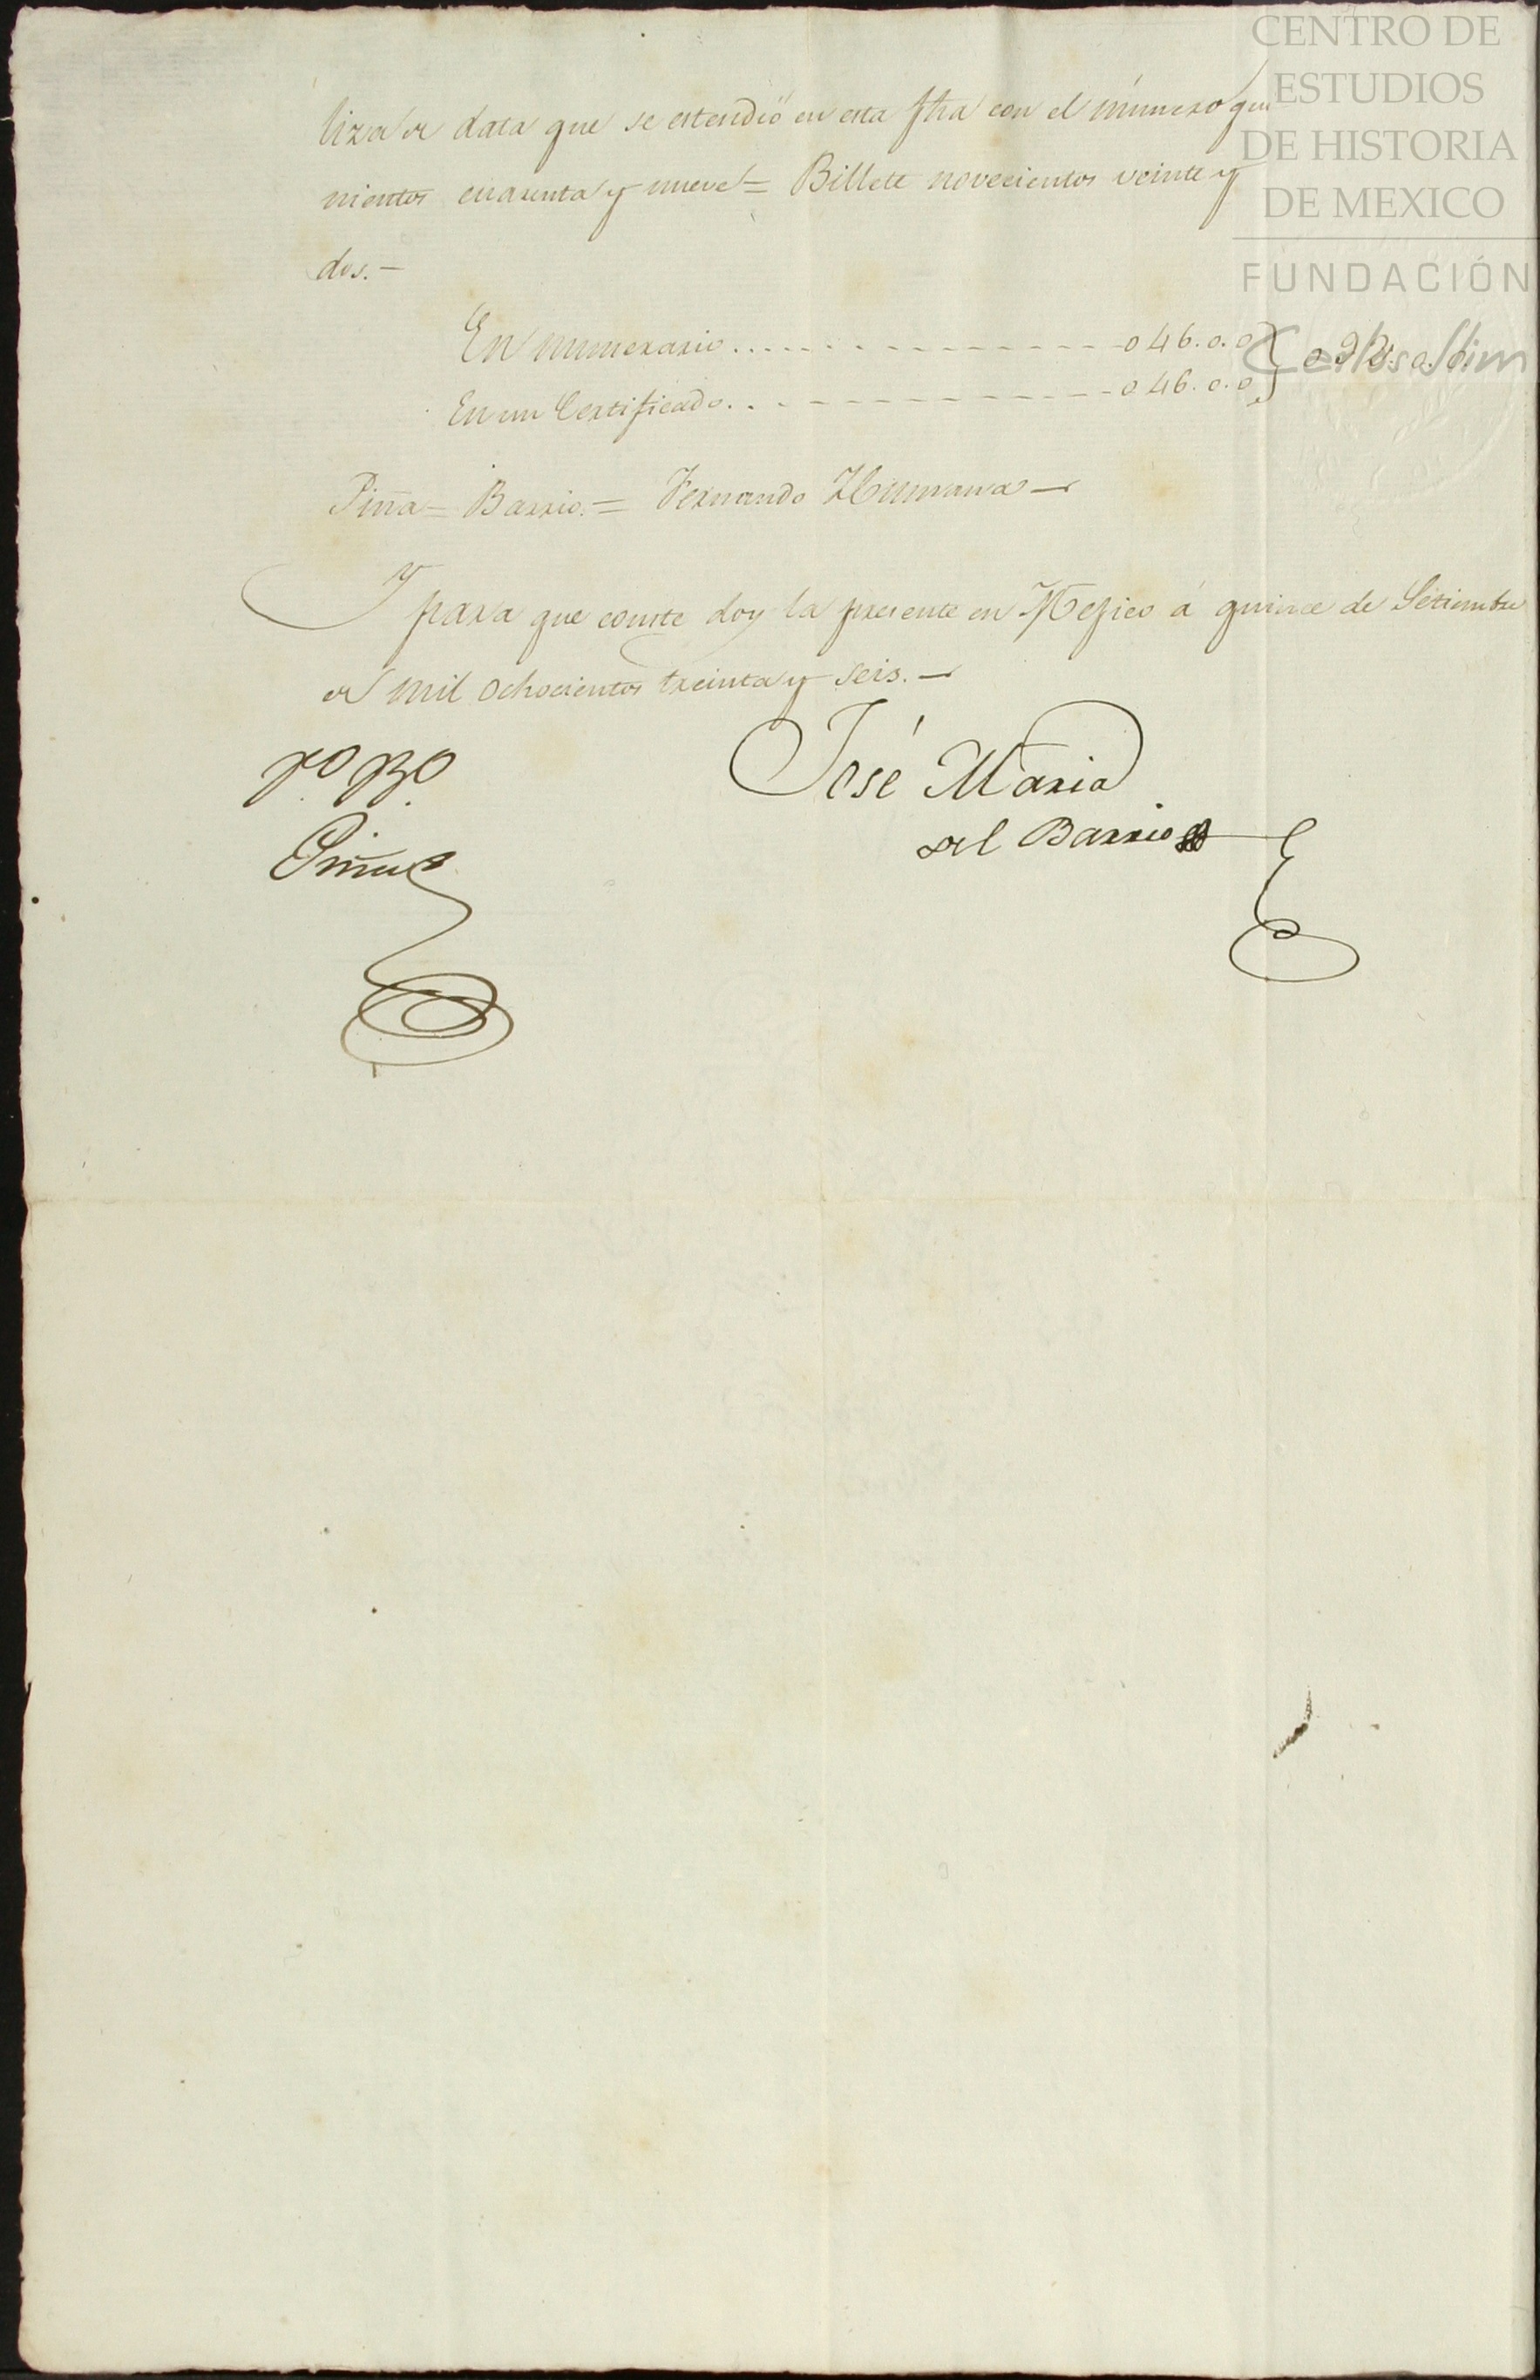 liza de data que se estendió en esta fha con el número qui
nientos cuarenta y nueve = Billete novecientos veinte y
dos. –
En numerario .... - - - - 046.0.0
En un Certificado. . . - - - - 046.0.0 } 092.0.0.
Piña = Barrio. = Fernando
Y para que conste doy la presente en Mejico á quince de Setiembre
de mil ochocientos treinta y seis. –
José Maria
del Barrio
Piña
CENTRO DE
ESTUDIOS
DE HISTORIA
DE MEXICO
FUNDACIÓN
Carlos Slim